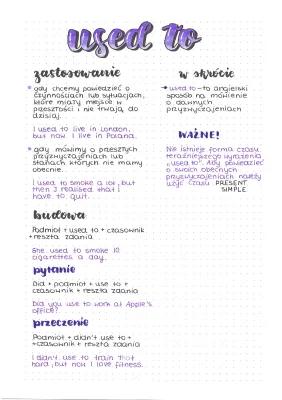 used to
zastosowanie
gdy chcemy powiedzieć o
czynnościach lub sytuacjach,
które miały miejsce w
przeszłości i nie trwają do
dzisiaj.
I used to live in London,
but now I live in Poland.
gdy mówimy o przeszłych
przyzwyczajeniach lub
stanach których nie mamy
obecnie.
I used to smoke a lot, but
then I realised that I
have to quit.
budowa
Podmiot + used to + czasownik
+ reszta zdania
She used to smoke 10
cigarettes a day.
pytanie
Did + podmiot + use to +
czasownik + reszta zdania
Did you use to work at Apple's
office?
przeczenie
Podmiot + didn't use to +
+czasownik + reszta zdania
I didn't use to train that
hard, but now I love fitness.
w skrócie
used to - to angielski
sposób na mówienie
o dawnych
przyzwyczajeniach
WAŻNE!
Nie istnieje forma czasu
teraźniejszego wyrażenia
"used to". Aby powiedzieć
o swoich obecnych
przyzwyczajeniach należy
użyć czasu PRESENT
SIMPLE